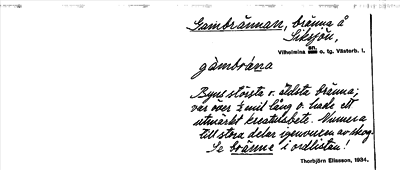 Gambrännan, bränna å
Siksjön,
Vilhelmina sn o. tg. Västerb. l.
gàmbrána
Byns största o. äldsta bränna;
var över ½ mil lång o. hade ett
utmärkt kreatursbete. Numera
till stora delar igenvuxen av skog.
Se bränne i ordlistan!
Thorbjörn Eliasson, 1934.